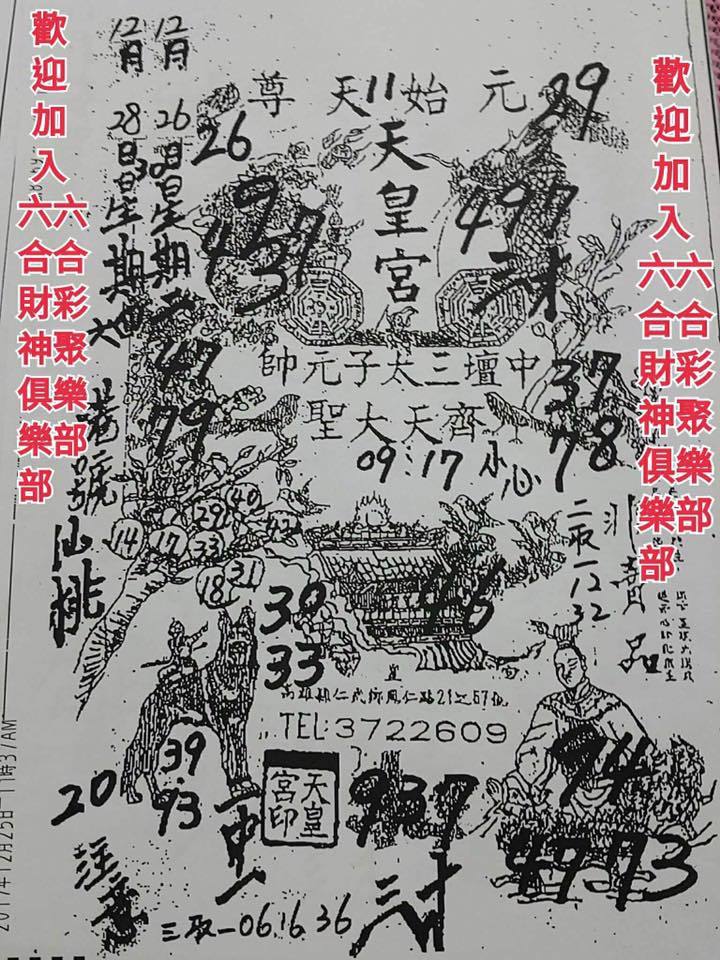 歡迎加入六合彩聚樂部
六合財神俱樂部
歡迎加入六合彩聚樂部
六合財神俱樂部
12月26日星期二
12月28日星期四
30
六
元始天尊
11
29
26
天皇宮
9
4 7
3
497
二才
中壇三太子元帥
齊天大聖
47
79
37
78
09:17 小心
港號仙桃
29 40
14 17 33 42
18 31
二取一 12
32
30
33
46
高雄縣仁武鄉鳳仁路21之67號
TEL:3722609
39
93
20
注意
天皇
宮印
937
三才
74
47 73
三取一06.16.36
2017年12月25日